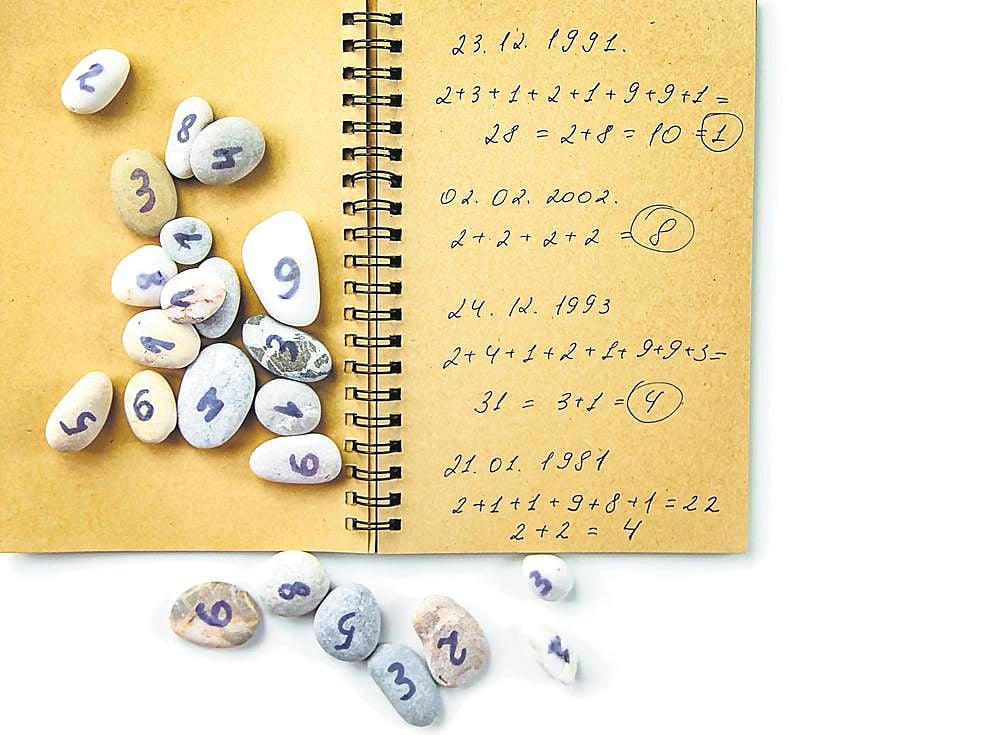 23. 12. 1991.
2+3+1+2+1+9+9+1=
28 = 2+8 = 10 = 1
02. 02. 2002.
2+2+2+2 = 8
24. 12. 1993
2+4+1+2+1+9+9+3=
31 = 3+1 = 4
21. 01. 1981
2+1+1+9+8+1=22
2+2 = 4
2
8
4
3
1
8
9
1
3
4
1
5
9
9
8
9
5
2
3
3